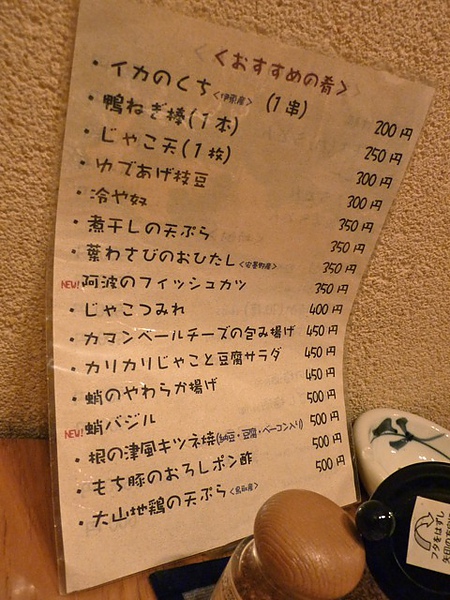 ＜おすすめの肴＞
・イカのくち (1串) 200円
・鴨ねぎ棒(1本) 250円
・じゃこ天(1枚) 300円
・ゆであげ枝豆 300円
・冷や奴 350円
・煮干しの天ぷら 350円
・葉わさびのおひたし＜安曇野産＞ 350円
NEW!阿波のフィッシュカツ 350円
・じゃこつみれ 400円
・カマンベールチーズの包み揚げ 450円
・カリカリじゃこと豆腐サラダ 450円
・蛸のやわらか揚げ 450円
NEW!蛸バジル 500円
・根の津風キツネ焼(納豆・豆腐・ベーコン入り) 500円
・もち豚のおろしポン酢 500円
・大山地鶏の天ぷら＜鳥取産＞ 500円
フタをはずし